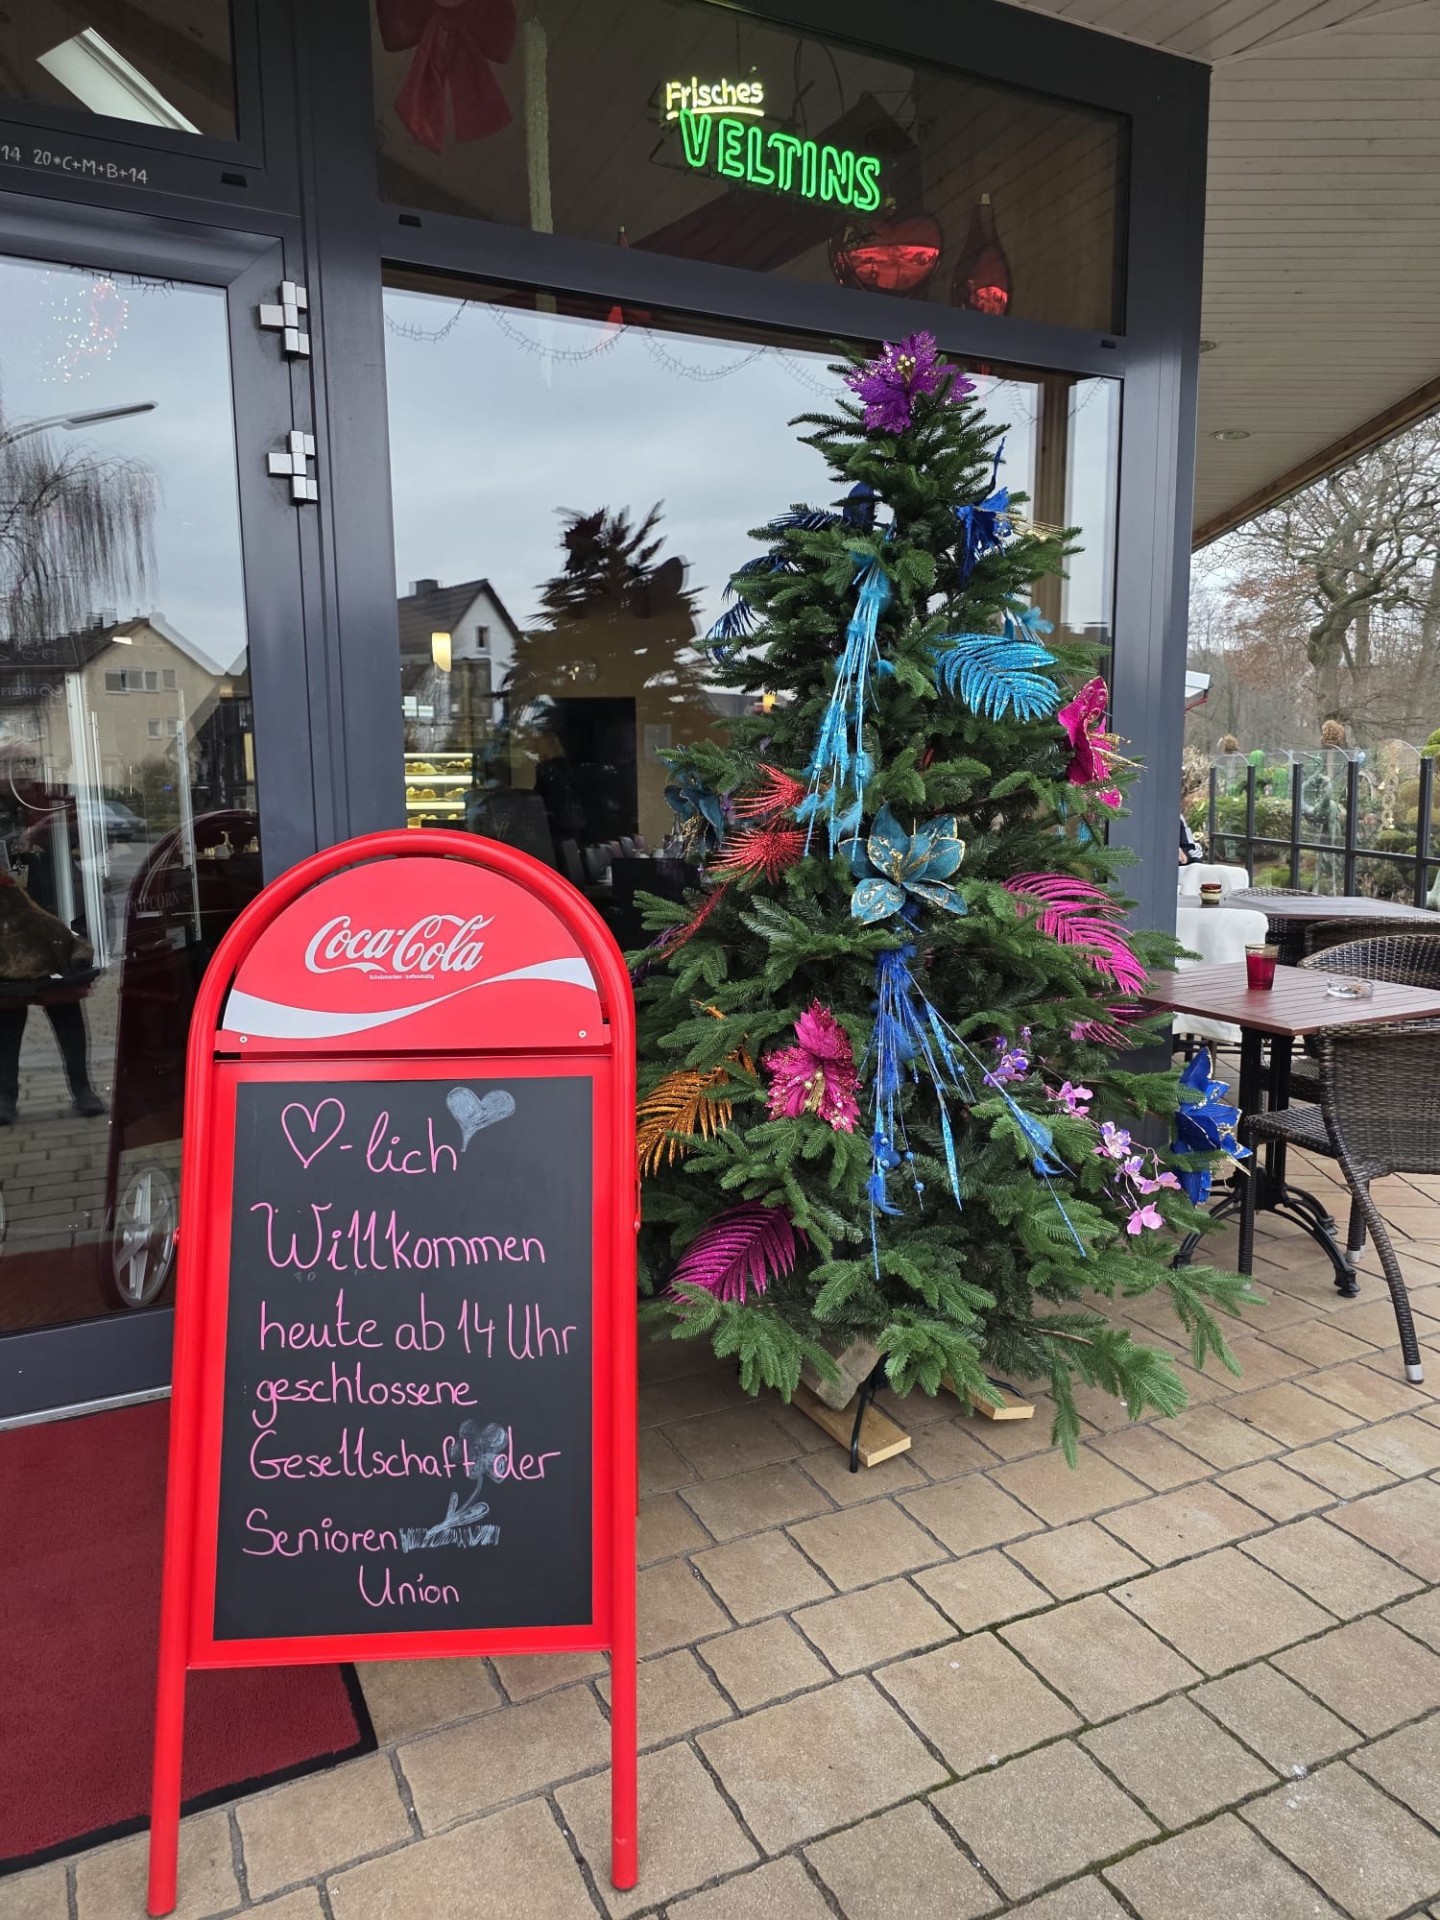 Frisches
VELTINS
14 20*C+M+B+14
FRESH
POPCORN
Coca-Cola
♡-lich
Willkommen
heute ab 14 Uhr
geschlossene
Gesellschaft der
Senioren
Union